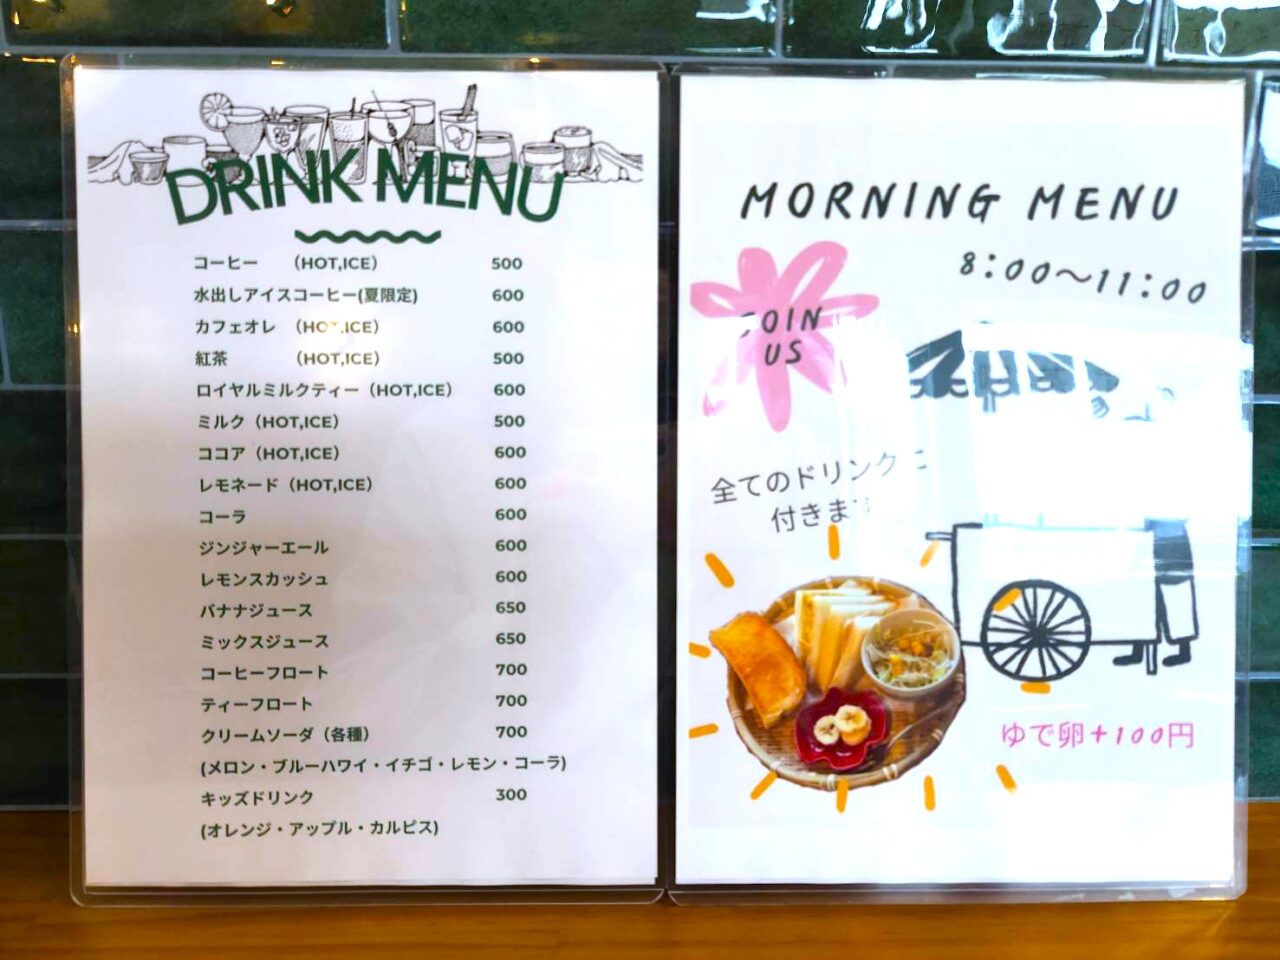 DRINK MENU
コーヒー （HOT,ICE） 500
水出しアイスコーヒー(夏限定) 600
カフェオレ （HOT,ICE） 600
紅茶 （HOT,ICE） 500
ロイヤルミルクティー（HOT,ICE） 600
ミルク（HOT,ICE） 500
ココア（HOT,ICE） 600
レモネード（HOT,ICE） 600
コーラ 600
ジンジャーエール 600
レモンスカッシュ 600
バナナジュース 650
ミックスジュース 650
コーヒーフロート 700
ティーフロート 700
クリームソーダ（各種） 700
(メロン・ブルーハワイ・イチゴ・レモン・コーラ)
キッズドリンク 300
(オレンジ・アップル・カルピス)
MORNING MENU
8:00〜11:00
JOIN
US
全てのドリンクに
付きます
ゆで卵+100円